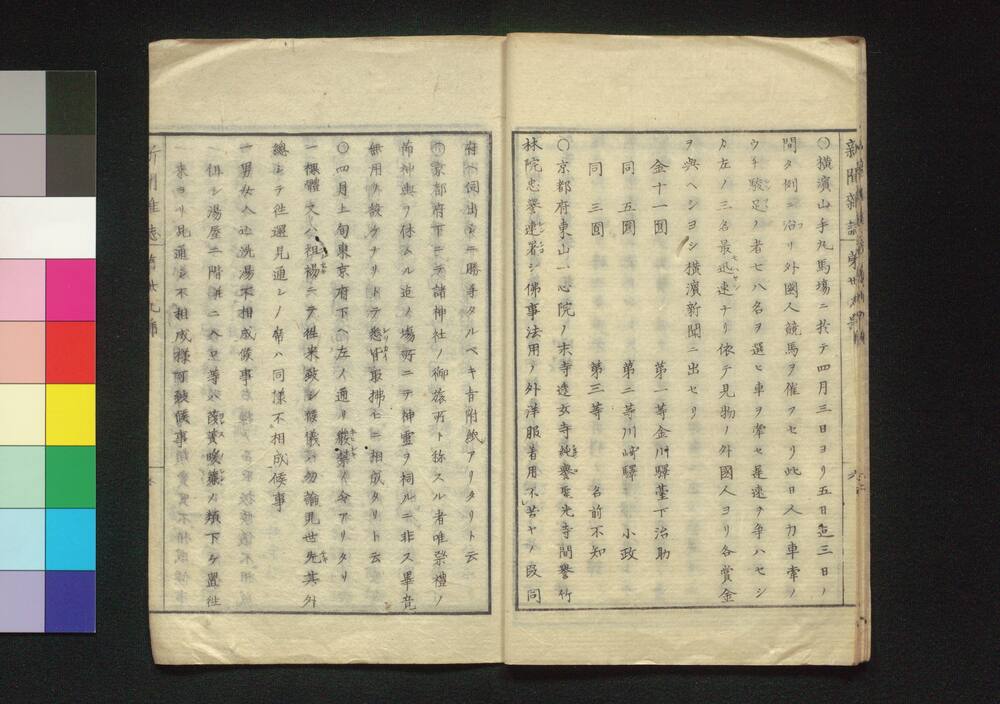 〇横濱山手丸馬場ニ於テ四月三日ヨリ五日迄三日ノ
間タ例ニ沿リ外國人競馬ヲ催フセリ此日人力車牽ノ
ウチ駿足ノ者七八名ヲ選ヒ車ヲ牽セ遅速ヲ争ハセシ
カ左ノ三名最迅速ナリ依テ見物ノ外國人ヨリ各賞金
ヲ與ヘシヨシ横濱新聞ニ出セリ
金十一圓 第一等金川驛臺下治助
同五圓 第二等川崎驛 小政
同三圓 第三等 名前不知
〇京都府東山一心院ノ末寺透玄寺純譽聖光寺聞譽竹
林院忠譽連署シ佛事法用ノ外洋服着用不苦ヤノ段同
府ヘ伺出シニ勝手タルベキ旨附紙アリタリト云
〇京都府下ニテ諸神社ノ御旅所ト称スル者唯祭禮ノ
節神輿ヲ休ムル迄ノ場所ニテ神霊ヲ祠ルニ非ス畢竟
無用ノ設ケナリトテ悉皆取拂ヒニ相成タリト云
〇四月上旬東京府下ヘ左ノ通リ嚴禁ノ令アリタリ
一裸體又ハ袒裼ニテ徃来致シ候儀ハ勿論見世先其外
總シテ徃還見通シノ席ハ同様不相成候事
一男女入込洗湯不相成候事
但シ湯屋二階并ニ入口等ハ葭簀暖簾ノ類下ケ置徃
来ヨリ見通シ不相成様可致候事